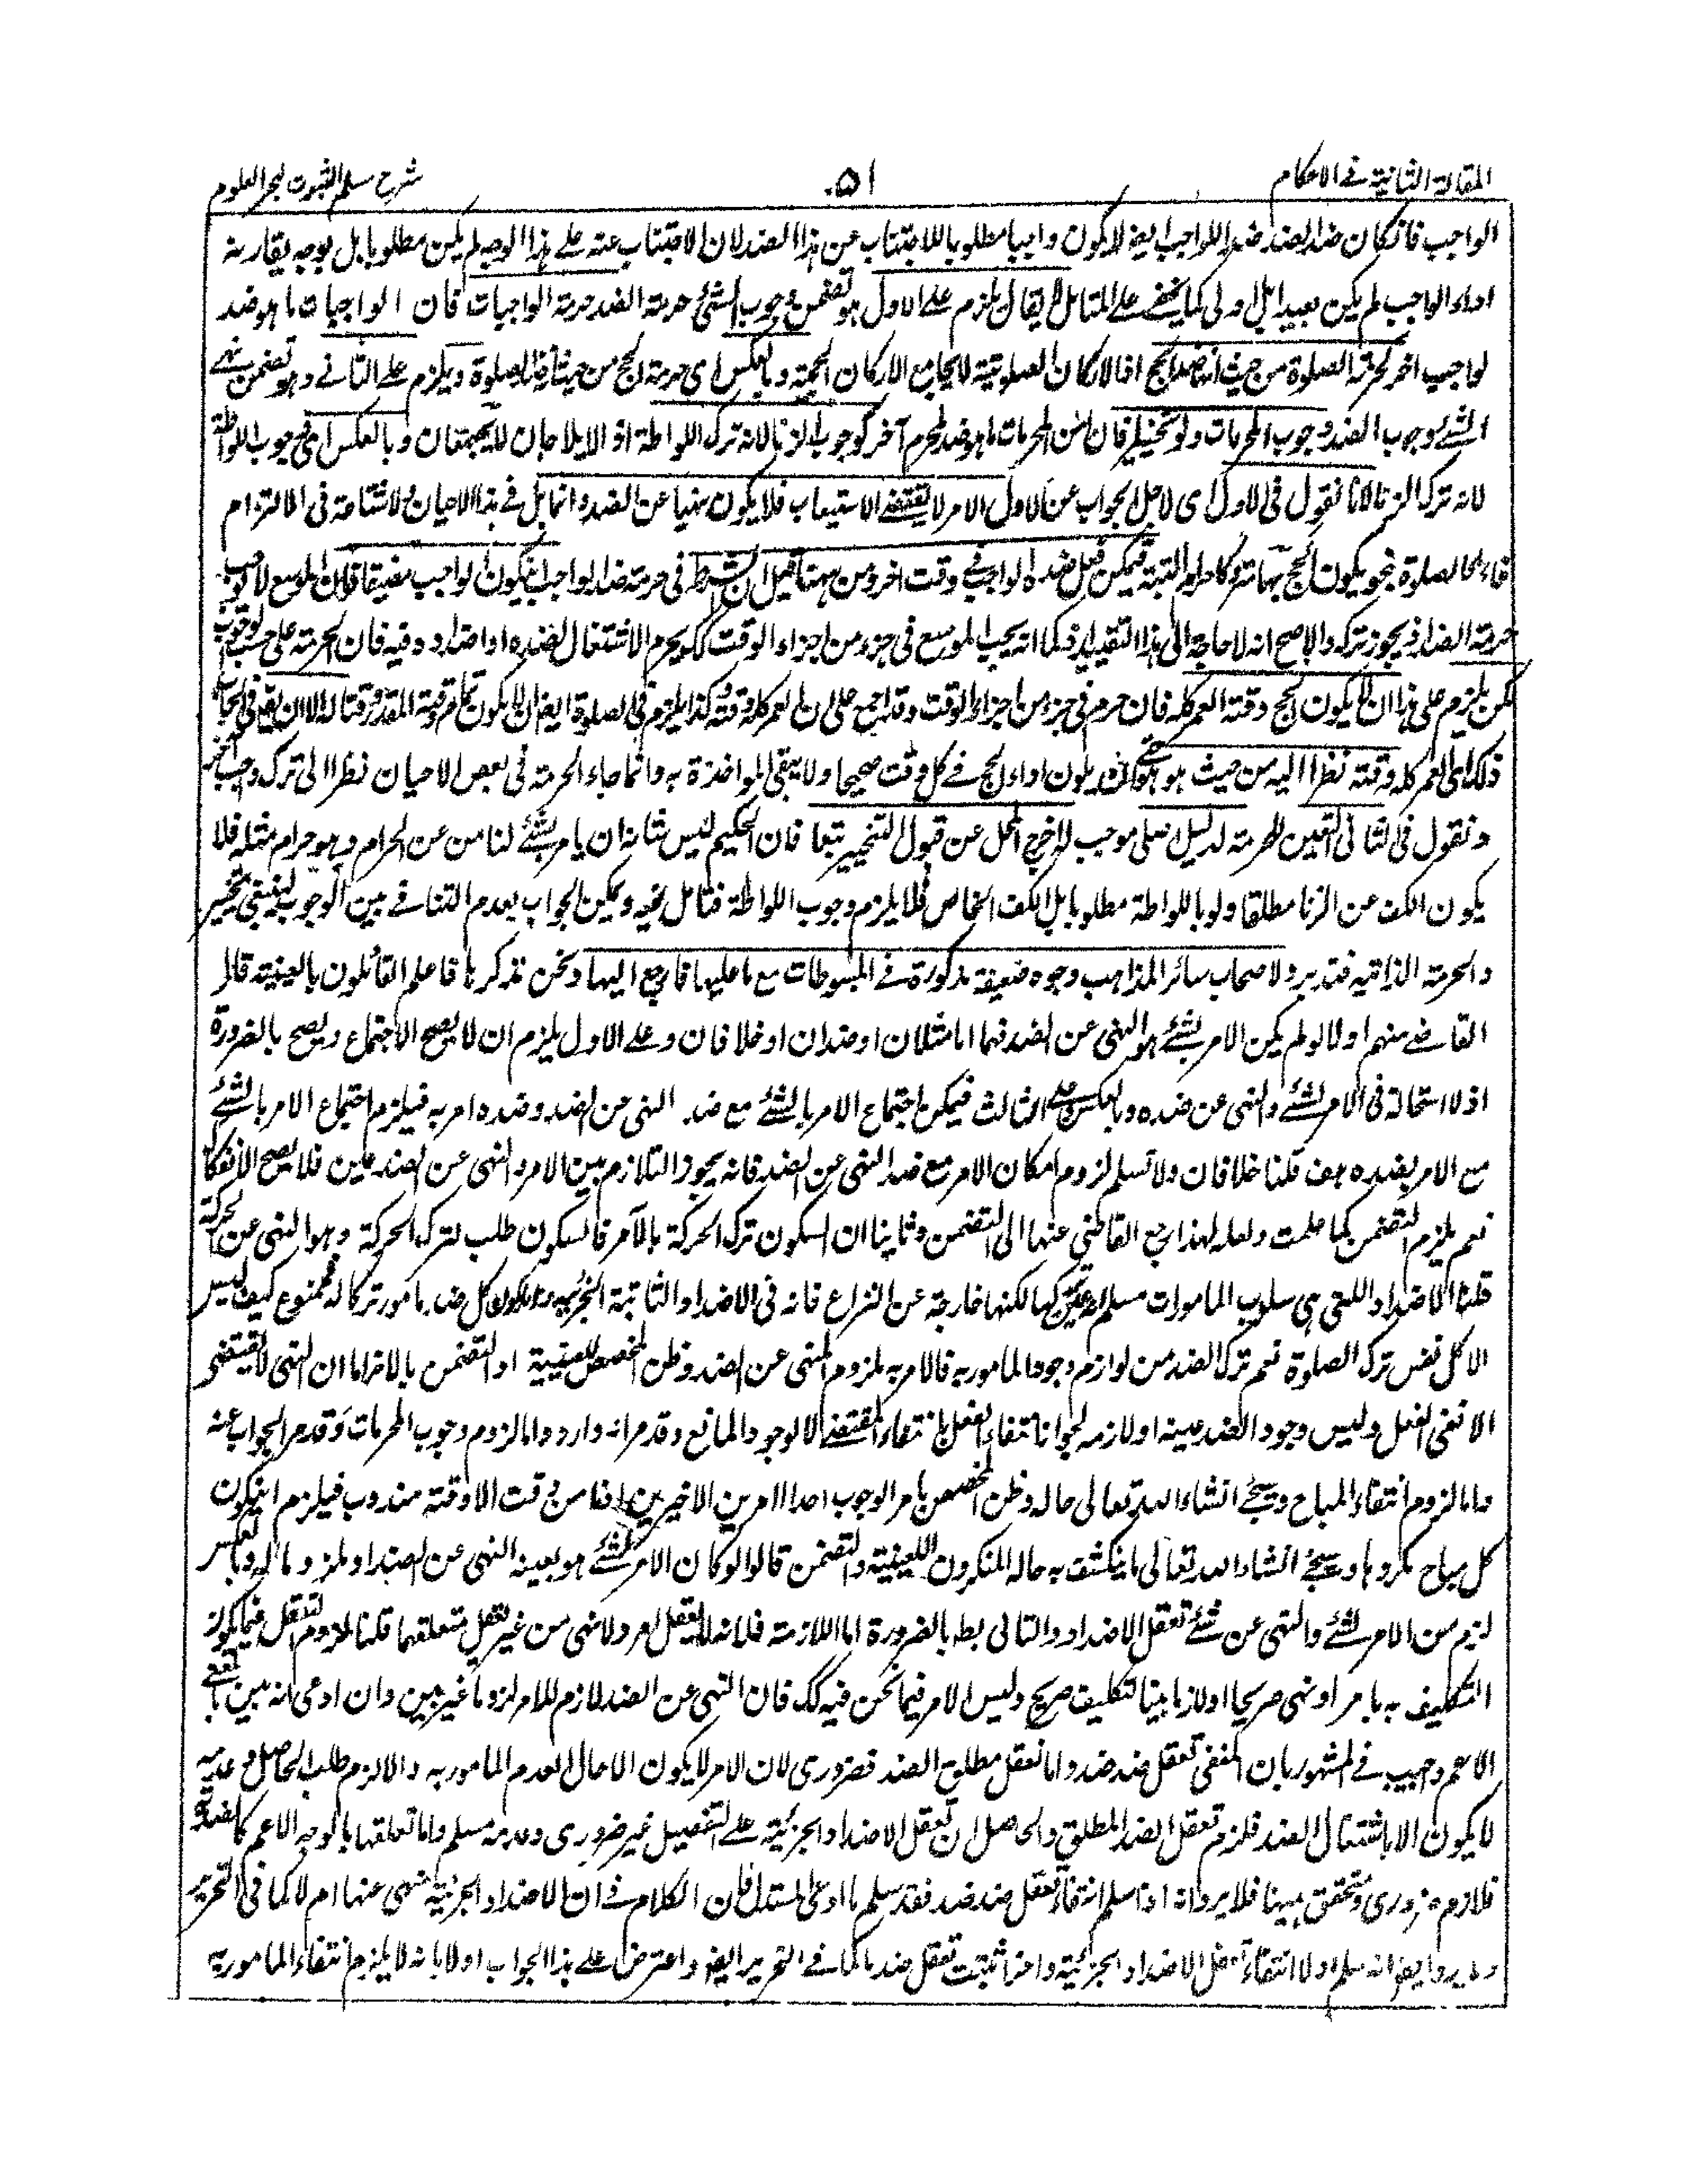 المقالة الثانية في الاحكام
٥١
شرح سلم الثبوت لبحر العلوم
الواجب فان كان ضد الضد ضدا للواجب ايضا لا يكون واجبا مطلوبا للاجتناب عن هذا الضد لان الاجتناب عنه على هذا الوجه لم يكن مطلوبا بل بوجه يقارنه
اداء الواجب لم يكن بعيدا بل اولى كما لا يخفى على المتامل لا يقال يلزم على الاول هو تضمن وجوب الشئ حرمة الضد حرمة الواجبات فان الواجبات ما هو ضد
لواجب اخر كحرمة الصلوة من حيث انها ضد الحج اذ الاركان الصلوتية لا يجامع الاركان الحجية وبالعكس اى حرمة الحج من حيث انه ضد الصلوة ويلزم على الثانى وهو تضمن نهى
الشئ وجوب الضد وجوب المحرمات ولو تخييرا فان من المحرمات ما هو ضد لمحرم آخر كوجوب الزنا لانه ترك اللواطة اذ الايلاجان لا يجتمعان وبالعكس اى وجوب اللواطة
لانه ترك الزنا لانا نقول فى الاول اى لاجل الجواب عن الاول الامر لا يقتضى الاستيعاب فلا يكون نهيا عن الضد دائما بل فى بعض الاحيان ولا شناعة فى الالتزام
فاداء الصلوة بنحو يكون الحج بها متروكا حرام البتة فيمكن فعل ضده الواجب فى وقت اخر ومن ههنا قيل ان الشرط فى حرمة ضد الواجب ان يكون الواجب مضيقا فان الموسع لا يوجب
حرمة الضد اذ يجوز تركه والاصح انه لا حاجة الى هذا التقييد اذ كما انه يجب الموسع فى جزء من اجزاء الوقت كك يحرم الاشتغال بضده او اضداده فيه فان الحرمة على حسب الوجوب
لكن يلزم على هذا ان لا يكون الحج وقته العمر كله فان حرم فى جزء من اجزاء الوقت وقد اجمع على ان العمر كله وقته وكذا يلزم فى الصلوة ايضا ان لا يكون تمام وقته المقدر وقتا له الا ان يقال فى الجواب
ذلك اى العمر كله وقته نظرا اليه من حيث هو هو حتى يكون اداء الحج فى كل وقت صحيحا ولا يبقى المواخذة به وانما جاء الحرمة فى بعض الاحيان نظرا الى ترك واجب آخر
ونقول فى الثانى التعيين للحرمة لدليل اصلى موجب لاخراج المحل عن قبول التخيير تبعا فان الحكيم ليس شانه ان يامر بشئ لنا من عن الحرام وهو حرام مثله فلا
يكون الكف عن الزنا مطلقا ولو باللواطة مطلوبا بل الكف الخاص فلا يلزم وجوب اللواطة فتامل فيه ويمكن الجواب بعدم التنافى بين الوجوب التخييرى
والحرمة الذاتية فتدبر ولاصحاب سائر المذاهب وجوه ضعيفة مذكورة فى المبسوطات مع ما عليها فارجع اليها ونحن نذكرها فاعلم القائلون بالعينية قال
القاضى منهم اولا لو لم يكن الامر بشئ هو النهى عن الضد فهما اما مثلان او ضدان او خلافان وعلى الاول يلزم ان لا يصح الاجتماع ويصح بالضرورة
اذ لا استحالة فى الامر بشئ والنهى عن ضده وبالعكس وعلى الثالث فيمكن اجتماع الامر بالشئ مع ضد النهى عن الضد وضده امر به فيلزم اجتماع الامر بالشئ
مع الامر بضده هف قلنا خلافان ولا نسلم لزوم امكان الامر مع ضد النهى عن الضد فانه يجوز التلازم بين الامر والنهى عن الضد ... فلا يصح الانفكاك
نعم يلزم التضمن كما علمت ولعله لهذا رجع القاضى عنها الى التضمن وثانيا ان السكون ترك الحركة بالامر فالسكون طلب لترك الحركة وهو النهى عن الحركة
قلنا الاضداد التى هى سلوب المامورات مسلم ... لكنها خارجة عن النزاع فانه فى الاضداد الثابتة الجزئية ولا يكون كل ضد مامور تركا له ممنوع كيف ليس
الاكل نفس ترك الصلوة نعم ترك الضد من لوازم وجود المامور به فالامر به ملزوم النهى عن الضد وظن المخصص للعينية او التضمن بالامر اما ان النهى لا يقتضى
الا نفى الفعل وليس وجود الضد عينه او لازمه لجواز انتفاء الفعل بانتفاء المقتضى لا لوجود المانع وقد مر انه وارد واما لزوم وجوب المحرمات وقد مر الجواب عنه
واما لزوم انتفاء المباح وسيجئ انشاء الله تعالى حاله وظن المخصص بامر الوجوب احد الامرين الاخيرين اذ ما من وقت الا وقته مندوب فيلزم ان يكون
كل مباح مكروها وسيجئ انشاء الله تعالى ما ينكشف به حاله المنكرون للعينية والتضمن قالوا لو كان الامر بشئ هو بعينه النهى عن الضد او ملزوما له وبالعكس
لزم من الامر بشئ والنهى عن شئ تعقل الاضداد والتالى بط بالضرورة اما اللازمة فلانه لا يتعقل امر ولا نهى من غير تعقل متعلقهما قلنا لزوم التعقل فيما يكون
التكليف به بامر او نهى صريحا او لازما بينا لتكليف صريح وليس الامر فيما نحن فيه كك فان النهى عن الضد لازم للامر لزوما غير بين وان ادعى انه بين بالمعنى
الاعم واجيب فى المشهور بان المنفى تعقل ضد ضد واما تعقل مطلق الضد فضرورى لان الامر لا يكون الا حال عدم المامور به والا لزم طلب الحاصل وعدمه
لا يكون الا باشتغال الضد فلزم تعقل الضد المطلق والحاصل ان تعقل الاضداد الجزئية على التفصيل غير ضرورى وعدمه مسلم واما تعلقها بالوجه الاعم كالضدية
فلازم ضرورى ومتحقق بينا فلا يرد انه اذا سلم انتفاء تعقل ضد ضد فقد سلم ما ادعى المستدل فان الكلام فى ان الاضداد الجزئية منهى عنها ام لا كما فى التحرير
ولا يرد ايضا انه سلم اولا انتفاء تعقل الاضداد الجزئية واخرا ثبتت تعقل ضد ما كما فى التحرير ايضا واعترض على هذا الجواب اولا بانه لا يلزم انتفاء المامور به